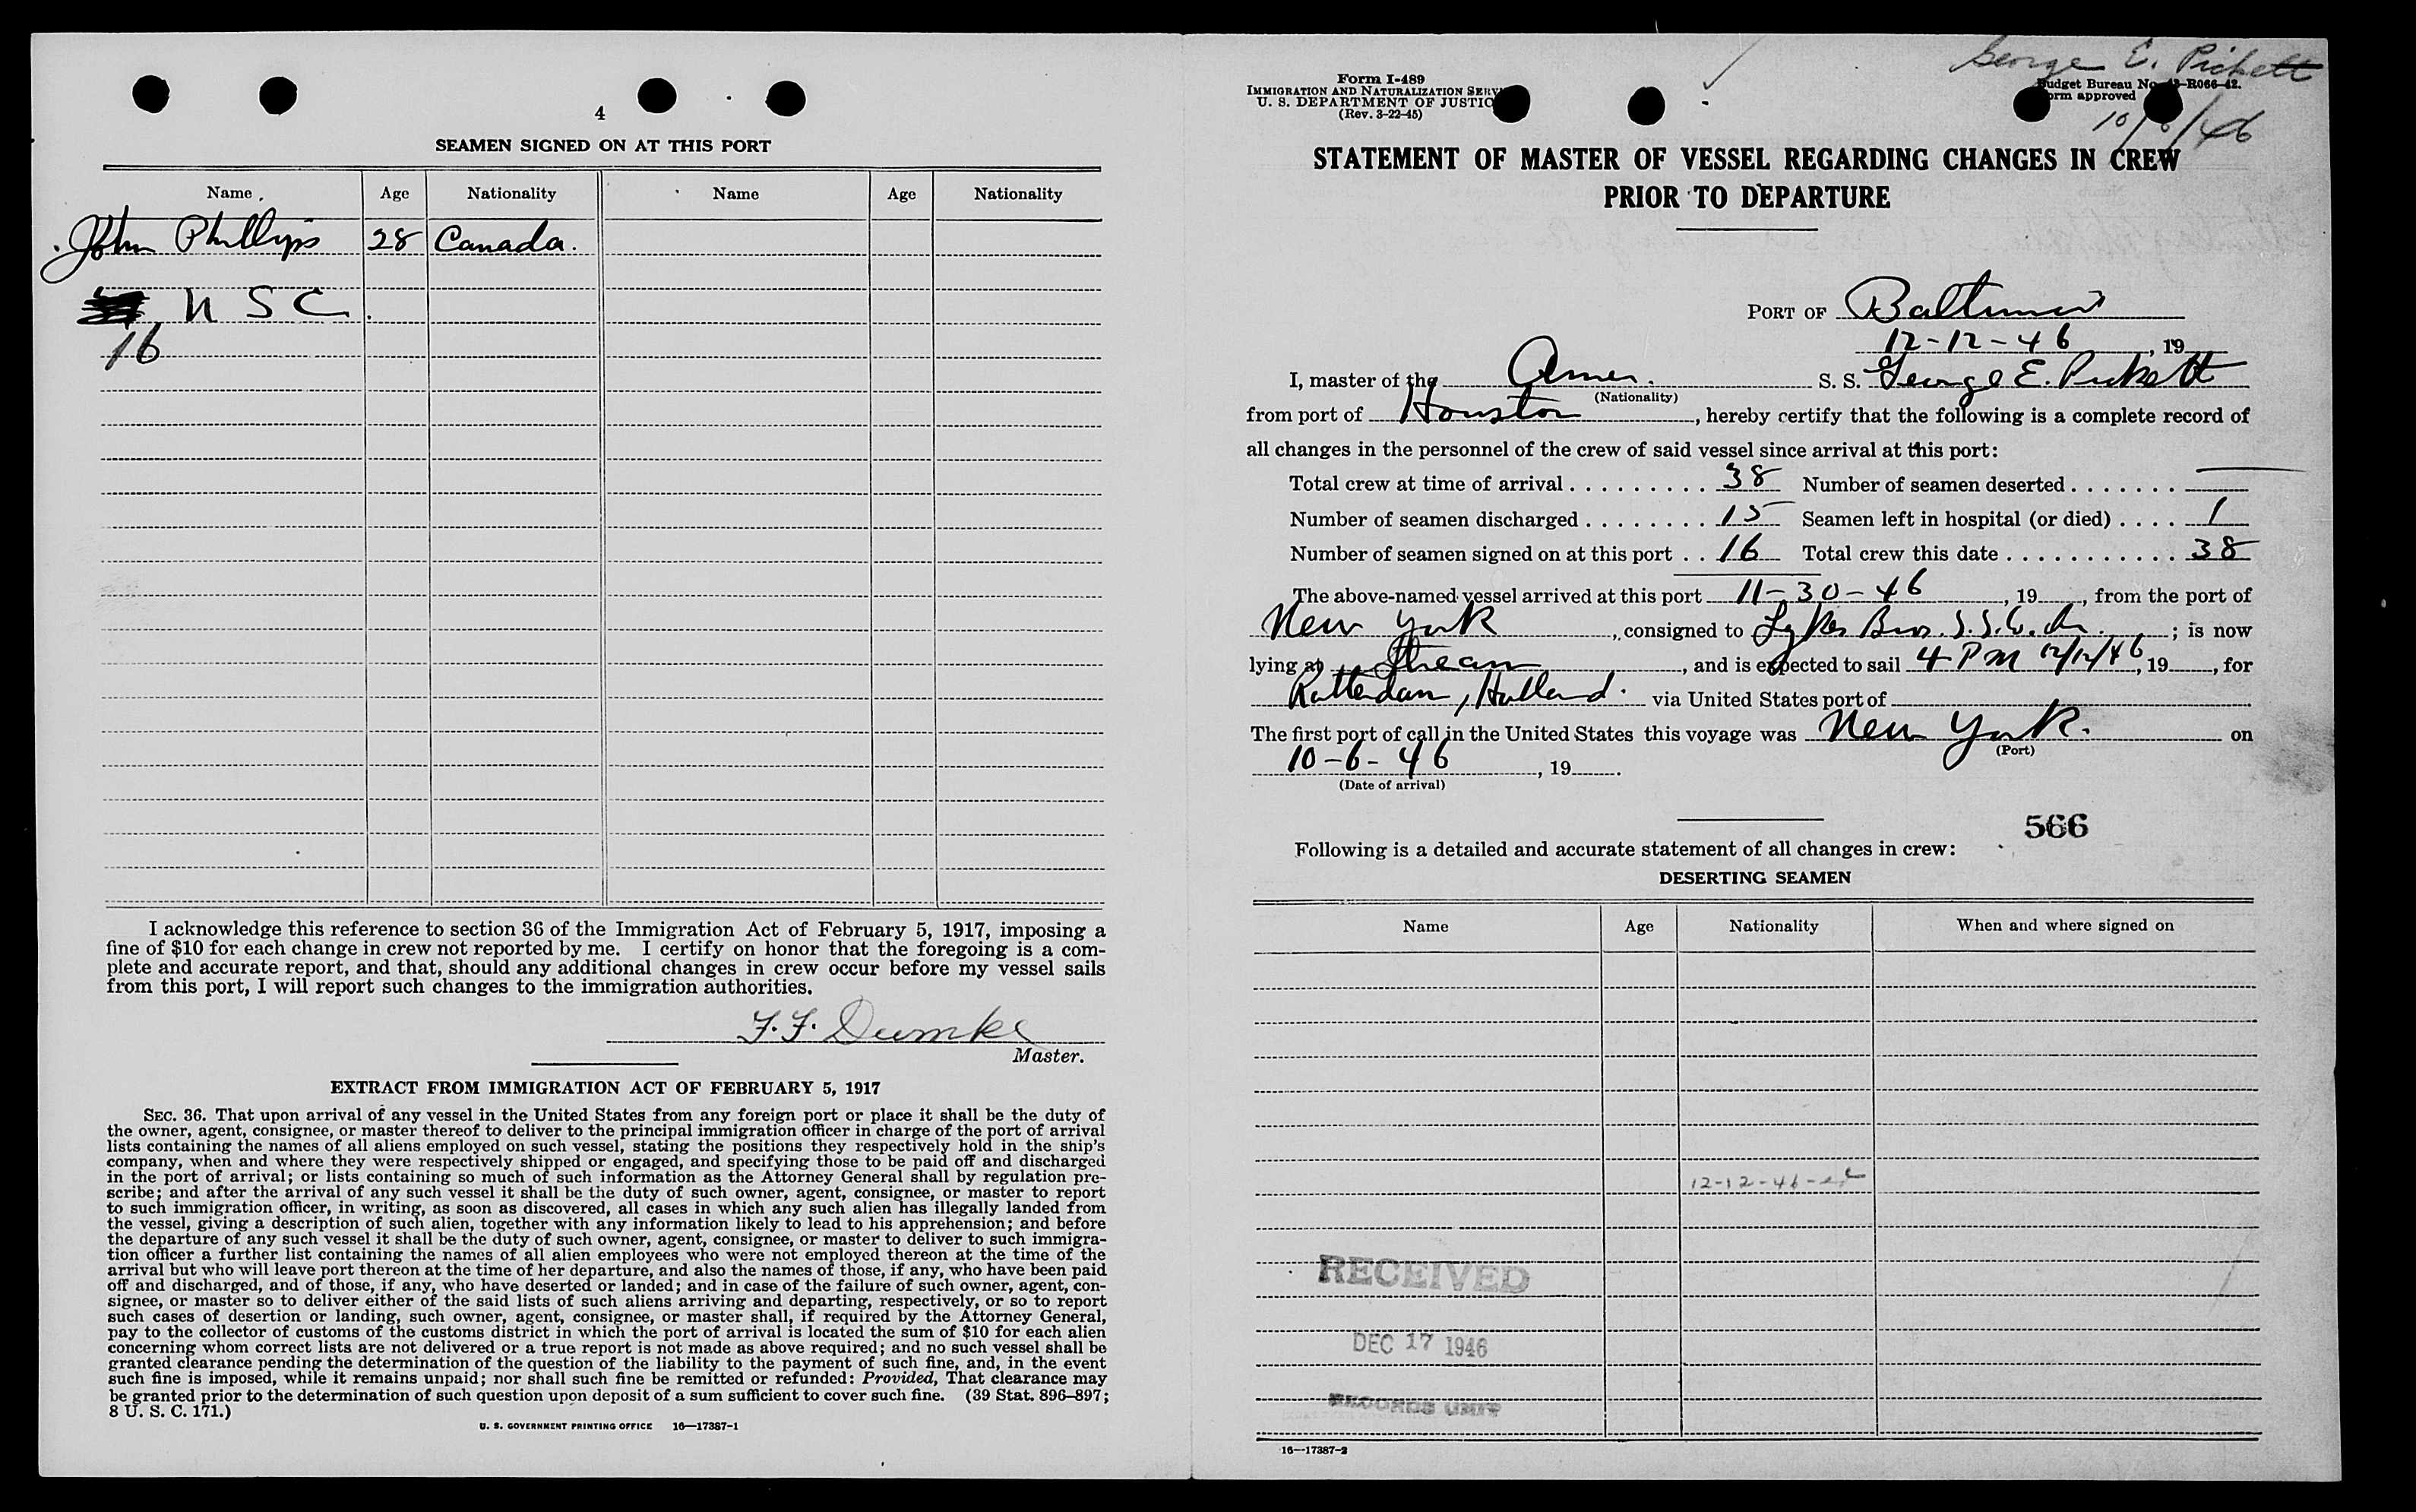 4
SEAMEN SIGNED ON AT THIS PORT
Name Age Nationality Name Age Nationality
John Phillips 28 Canada.
U S C
16
I acknowledge this reference to section 36 of the Immigration Act of February 5, 1917, imposing a
fine of $10 for each change in crew not reported by me. I certify on honor that the foregoing is a com-
plete and accurate report, and that, should any additional changes in crew occur before my vessel sails
from this port, I will report such changes to the immigration authorities.
F. F. Dumke
Master.
EXTRACT FROM IMMIGRATION ACT OF FEBRUARY 5, 1917
SEC. 36. That upon arrival of any vessel in the United States from any foreign port or place it shall be the duty of
the owner, agent, consignee, or master thereof to deliver to the principal immigration officer in charge of the port of arrival
lists containing the names of all aliens employed on such vessel, stating the positions they respectively hold in the ship's
company, when and where they were respectively shipped or engaged, and specifying those to be paid off and discharged
in the port of arrival; or lists containing so much of such information as the Attorney General shall by regulation pre-
scribe; and after the arrival of any such vessel it shall be the duty of such owner, agent, consignee, or master to report
to such immigration officer, in writing, as soon as discovered, all cases in which any such alien has illegally landed from
the vessel, giving a description of such alien, together with any information likely to lead to his apprehension; and before
the departure of any such vessel it shall be the duty of such owner, agent, consignee, or master to deliver to such immigra-
tion officer a further list containing the names of all alien employees who were not employed thereon at the time of the
arrival but who will leave port thereon at the time of her departure, and also the names of those, if any, who have been paid
off and discharged, and of those, if any, who have deserted or landed; and in case of the failure of such owner, agent, con-
signee, or master so to deliver either of the said lists of such aliens arriving and departing, respectively, or so to report
such cases of desertion or landing, such owner, agent, consignee, or master shall, if required by the Attorney General,
pay to the collector of customs of the customs district in which the port of arrival is located the sum of $10 for each alien
concerning whom correct lists are not delivered or a true report is not made as above required; and no such vessel shall be
granted clearance pending the determination of the question of the liability to the payment of such fine, and, in the event
such fine is imposed, while it remains unpaid; nor shall such fine be remitted or refunded: Provided, That clearance may
be granted prior to the determination of such question upon deposit of a sum sufficient to cover such fine. (39 Stat. 896–897;
8 U. S. C. 171.)
U. S. GOVERNMENT PRINTING OFFICE 16—17387-1
George E. Pickett
Form I-489
IMMIGRATION AND NATURALIZATION SERV
U. S. DEPARTMENT OF JUSTIC
(Rev. 3-22-45)
Budget Bureau No. -R066-42.
orm approved
10/6/46
STATEMENT OF MASTER OF VESSEL REGARDING CHANGES IN CREW
PRIOR TO DEPARTURE
PORT OF Baltimore
12-12-46, 19
I, master of the Amer. S. S. George E. Pickett
(Nationality)
from port of Houston, hereby certify that the following is a complete record of
all changes in the personnel of the crew of said vessel since arrival at this port:
Total crew at time of arrival 38 Number of seamen deserted —
Number of seamen discharged 15 Seamen left in hospital (or died) 1
Number of seamen signed on at this port 16 Total crew this date 38
The above-named vessel arrived at this port 11-30-46, 19, from the port of
New York, consigned to Lykes Bros. S.S. Co. ; is now
lying at Stream, and is expected to sail 4 PM 12/12/46, 19, for
Rotterdam, Holland. via United States port of
The first port of call in the United States this voyage was New York. on
(Port)
10-6-46, 19.
(Date of arrival)
566
Following is a detailed and accurate statement of all changes in crew:
DESERTING SEAMEN
Name Age Nationality When and where signed on
12-12-46
RECEIVED
DEC 17 1946
RECORDS UNIT
16—17387-2